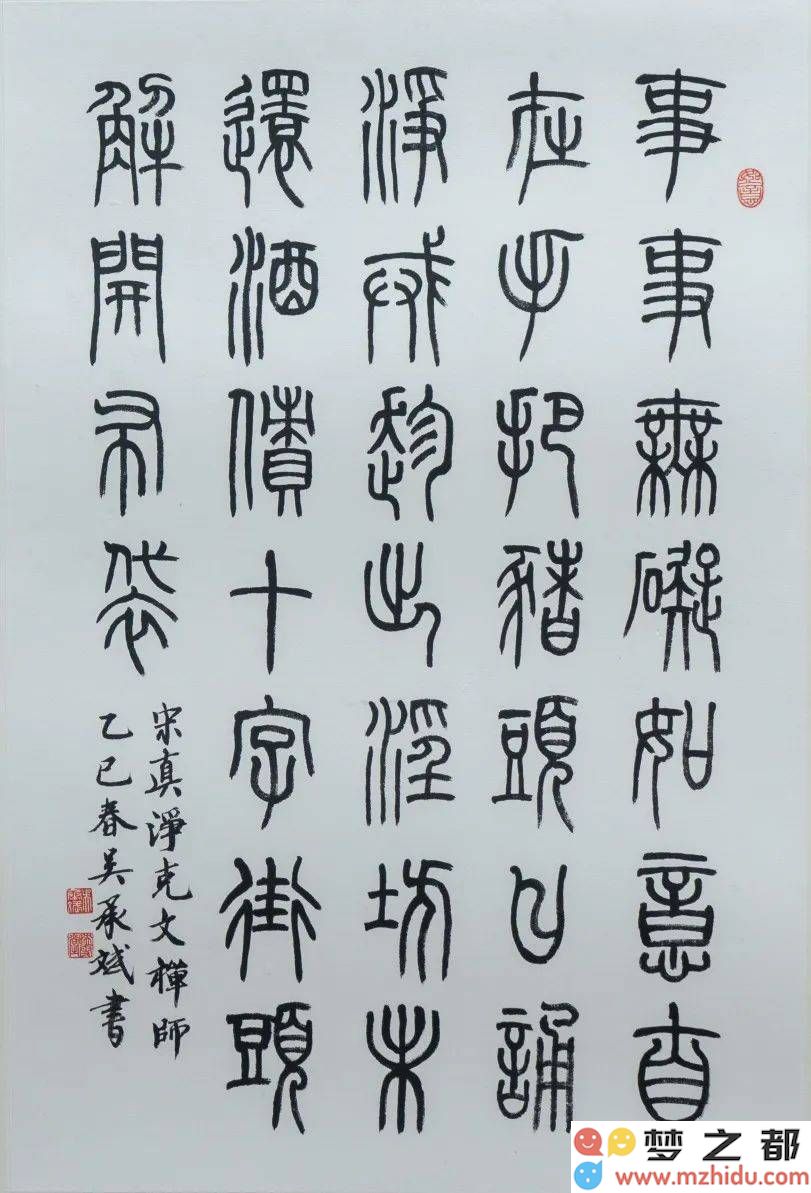 事事無礙如意自
在手把豬頭口誦
淨戒趁出淫坊未
還酒債十字街頭
解開布袋
宋真淨克文禪師
乙巳春吳承斌書
梦之都
www.mzhidu.com